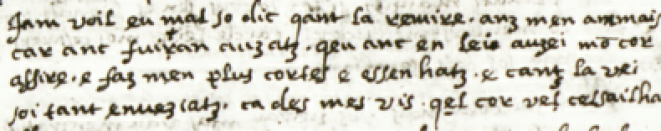 Jam voil eu mal so dic qant la remire. anz men am mais
car anc fui tan auzatz. qeu anc en leis auzei mō cor
assire. e faz men plus cortes e essenhatz. e cant la vei
soi tant envezatz. ca des mes vis. qel cor ves